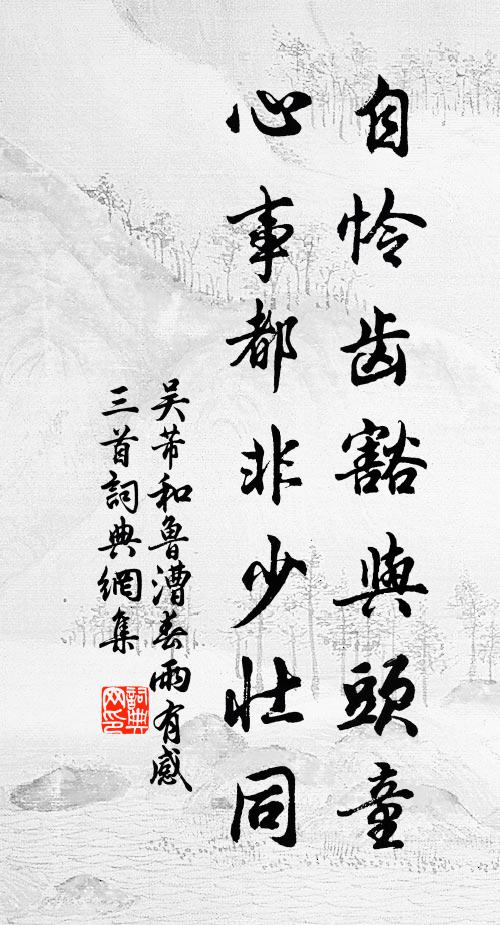 自怜齿豁與頭童
心事都非少壯同
吴芾和魯漕春雨有感
三首詞典網集
詞典网印